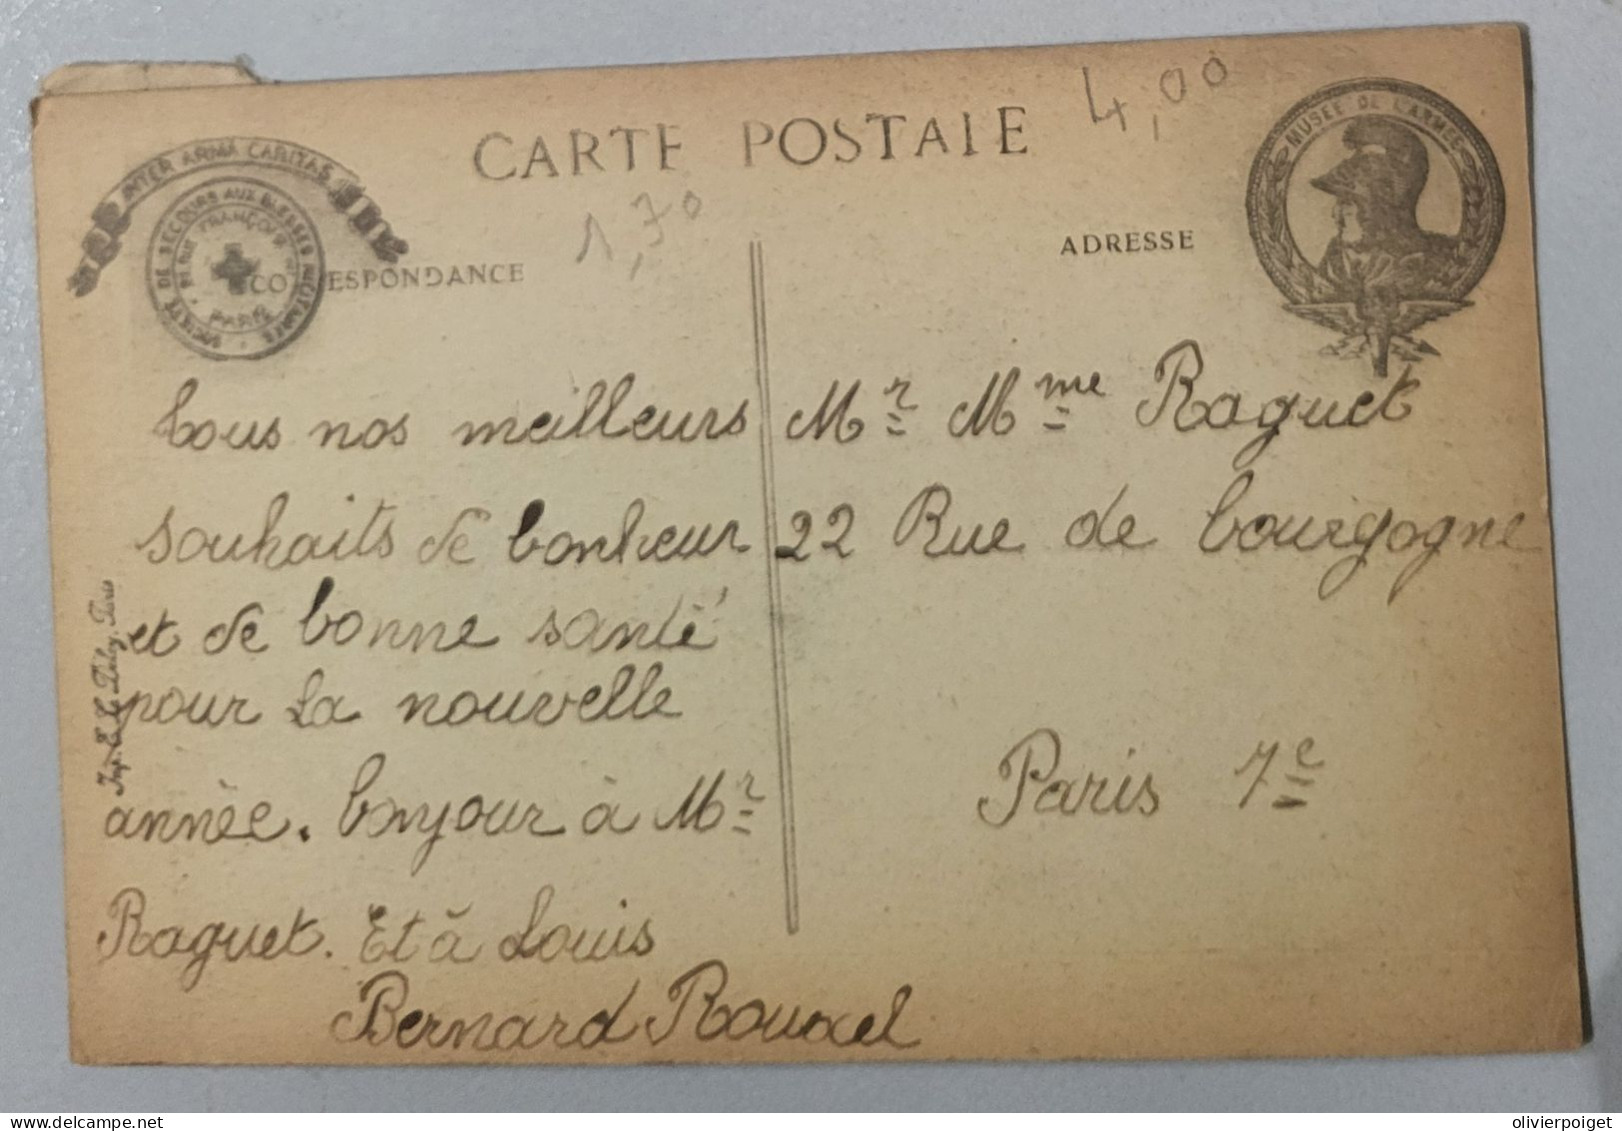 CARTE POSTALE
4,00
MUSÉE DE L'ARMÉE
INTER ARMA CARITAS
SOCIÉTÉ DE SECOURS AUX BLESSÉS MILITAIRES
PARIS
1,70
CORRESPONDANCE
ADRESSE
tous nos meilleurs
souhaits de bonheur
et de bonne santé
pour la nouvelle
année. bonjour à Mr
Raguet. Et à Louis
Bernard Rouxel
Mr Mme Raguet
22 Rue de bourgogne
Paris 7e
olivierpoiget